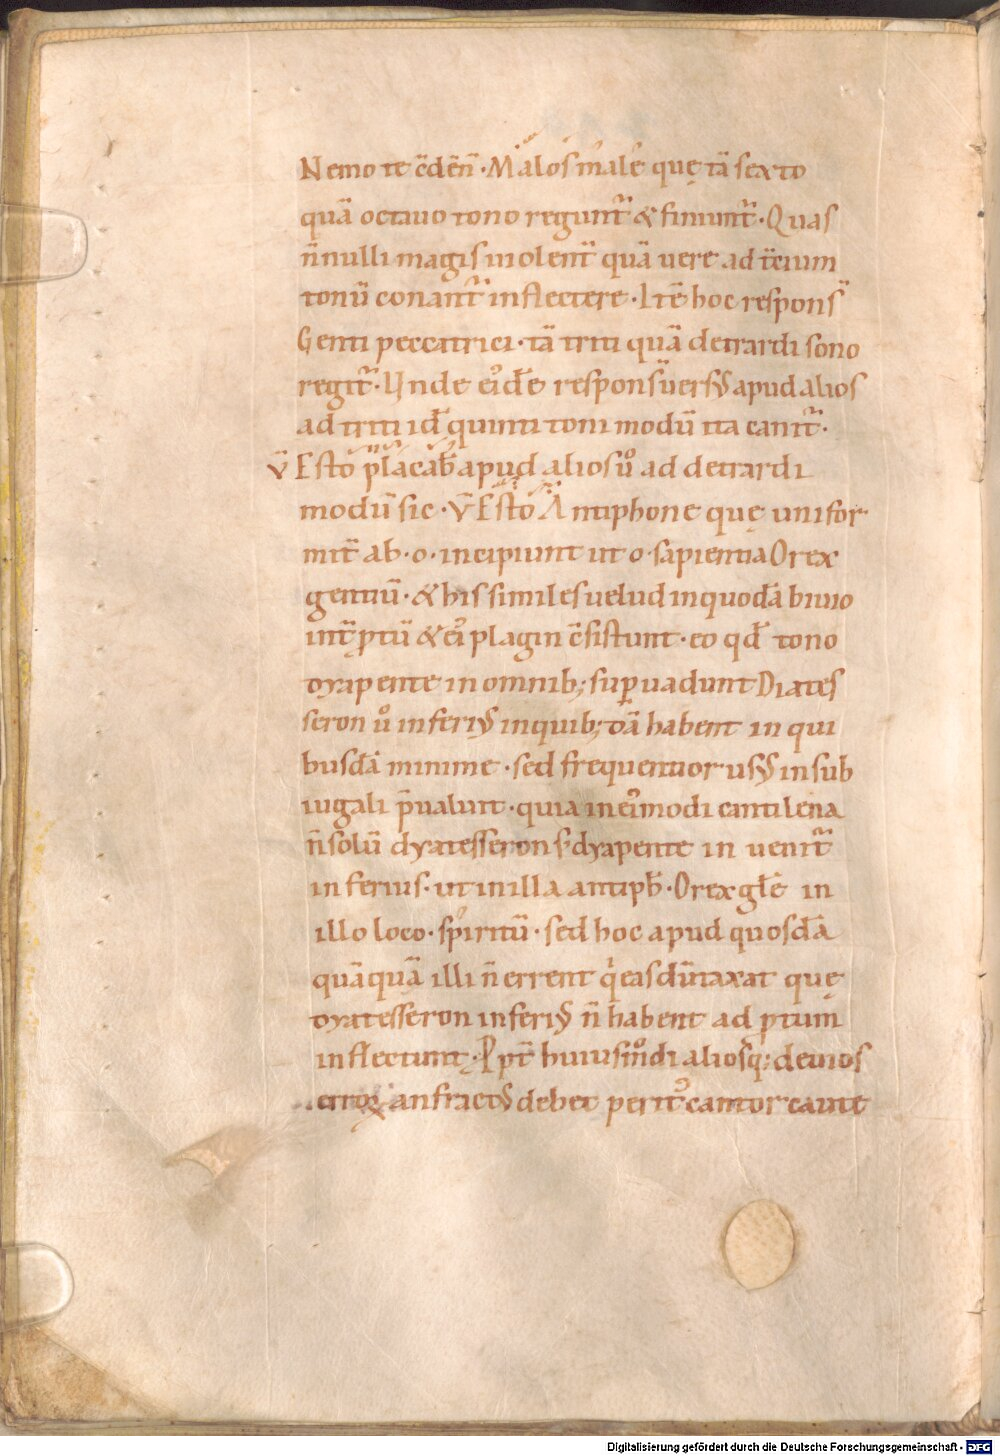 Nemo te c̄dēn̄ · Malos male quę tā sexto
quā octauo tono regunt̄ & finiunt̄ · Quas
n̄nulli magis uiolent̄ quā uere ad t̄cium
tonū conant̄ inflectere · Itē hoc respons̄
Genti peccatrici · tā triti quā detrardi sono
regit̄ · Unde ei᷒dē respons̄ uersꝰ apud alios
ad triti id̄ quinti toni modū ita canit̄ ·
v̄ Esto placab̄ apud alios uͦ ad detrardi
modū sic · v̄ Esto Antiphone quę unifor
mit̄ ab · o · incipiunt ut o sapientia O rex
gentiū · & his similes uelud in quodā biuio
int̄ ꝓtū & ei᷒ plagin c̄sistunt · eo qd̄ tono
dyapente in omnib; suꝑuadunt Diates
seron uͦ inferiꝰ in quib;dā habent in qui
busdā minime · sed frequentior usꝰ in sub
iugali p̄ualuit · quia in ei᷒modi cantilena
n̄ solū dyatesseron s; dyapente in uenit̄
inferius · ut in illa antiph̄ · O rex glē in
illo loco · spiritū · sed hoc apud quosdā
quāquā illi n̄ errent qͥ eas dūtaxat quę
dyatesseron inferiꝰ n̄ habent ad ꝓtum
inflectunt · Ppt̄ huiusmͦdi aliosq; deuios
erroꝝ anfractꝰ debet perit᷒ cantor caute
Digitalisierung gefördert durch die Deutsche Forschungsgemeinschaft - DFG